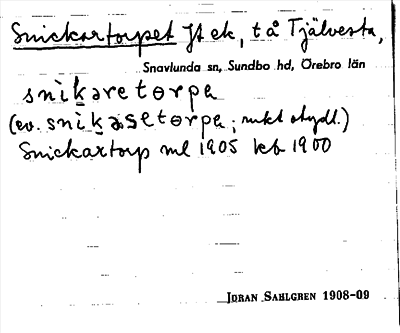 Snickartorpet Jt ek, t å Tjälvesta,
Snavlunda sn, Sundbo hd, Örebro län
snìkaretorpa
(ev. snìkasetorpa; mkt otydl.)
Snickartorp ml 1905 kb 1900
JÖRAN SAHLGREN 1908-09